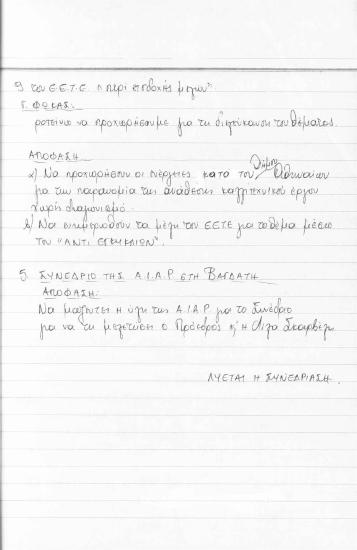 του Ε.Ε.Τ.Ε. περί αποδοχής μελών
Γ. ΦΩΚΑΣ:
ροτείνω να προχωρήσουμε για τη διαλεύκανση του θέματος.
ΑΠΟΦΑΣΗ
α) Να προχωρήσουν οι ενέργειες κατά του Δήμου Αθηναίων
για την παρανομία της ανάθεσης καλλιτεχνικού έργου
χωρίς διαγωνισμό.
β) Να ενημερωθούν τα μέλη του ΕΕΤΕ για το θέμα μέσω
του "ΑΝΤΙ ΕΓΚΥΚΛΙΩΝ".
5. ΣΥΝΕΔΡΙΟ ΤΗΣ A.I.A.P ΣΤΗ ΒΑΓΔΑΤΗ
ΑΠΟΦΑΣΗ:
Να μαζευτεί η ύλη της A.I.A.P για το Συνέδριο
για να τη μελετήσει ο Πρόεδρος κ' η Λίζα
ΛΥΕΤΑΙ Η ΣΥΝΕΔΡΙΑΣΗ.